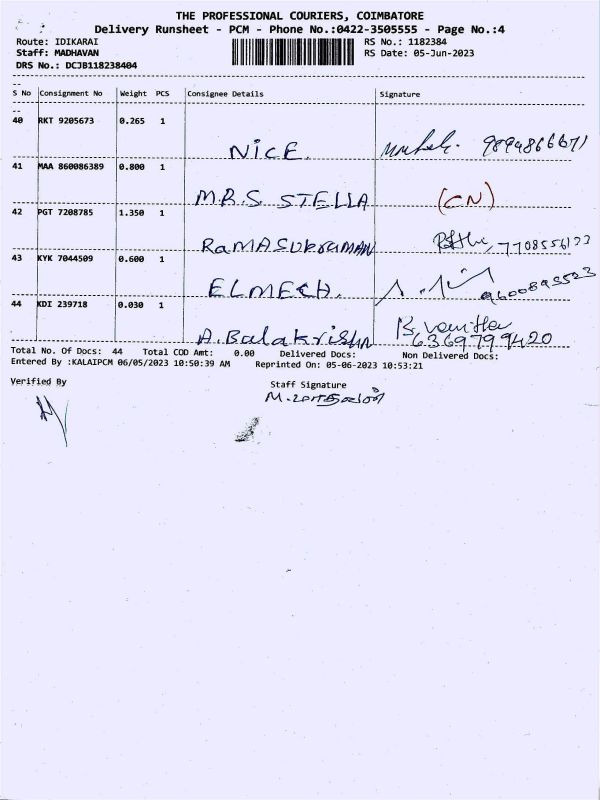 THE PROFESSIONAL COURIERS, COIMBATORE
Delivery Runsheet - PCM - Phone No.:0422-3505555 - Page No.:4
Route: IDIKARAI RS No.: 1182384
Staff: MADHAVAN RS Date: 05-Jun-2023
DRS No.: DCJB118238404
S No Consignment No Weight PCS Consignee Details Signature
40 RKT 9205673 0.265 1
NICE. 9894866671
41 MAA 860086389 0.800 1
MRS. STELLA (CN)
42 PGT 7208785 1.350 1
RAMASUBRAMAN 7708556177
43 KYK 7044509 0.600 1
ELMECH. 9600895523
44 KDI 239718 0.030 1
A.Balakrishn B. vanitha
6369799420
Total No. Of Docs: 44 Total COD Amt: 0.00 Delivered Docs: Non Delivered Docs:
Entered By :KALAIPCM 06/05/2023 10:50:39 AM Reprinted On: 05-06-2023 10:53:21
Verified By Staff Signature